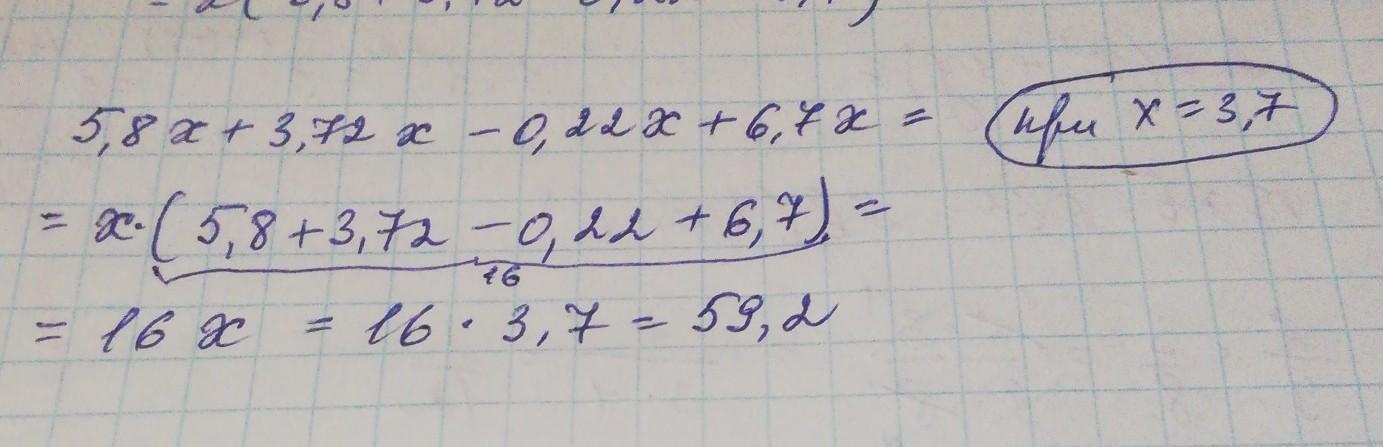 5,8x + 3,72x - 0,22x + 6,7x = при x = 3,7
= x·(5,8 + 3,72 - 0,22 + 6,7) =
16
= 16x = 16 · 3,7 = 59,2